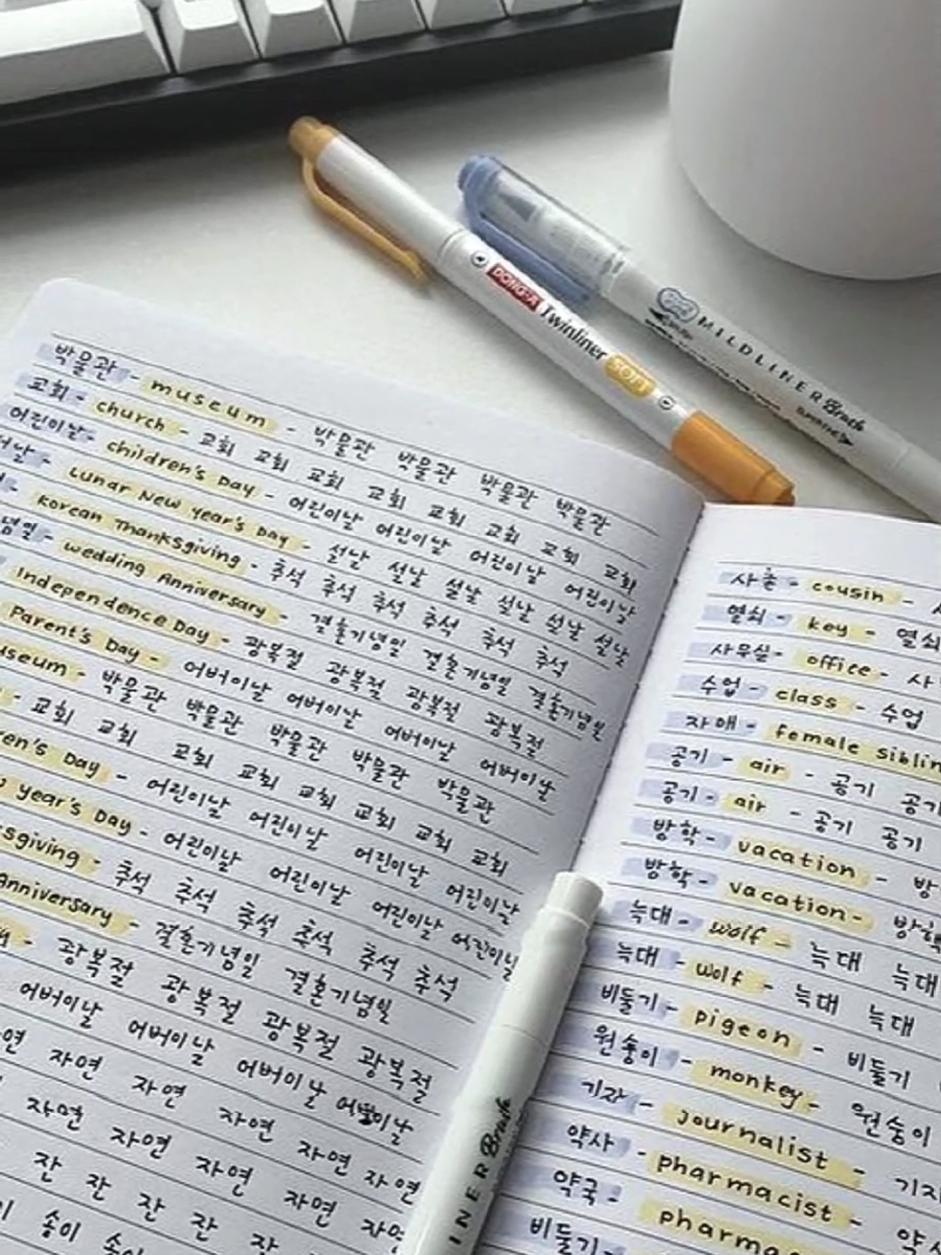 DONG-A Twinliner SOFT
MILDLINER Brush
박물관 - museum - 박물관 박물관 박물관 박물관
교회 - church - 교회 교회 교회 교회 교회 교회 교회
어린이날 - children's Day - 어린이날 어린이날 어린이날 어린이날
Lunar New year's Day - 설날 설날 설날 설날 설날 설날
Korean Thanksgiving - 추석 추석 추석 추석 추석 추석
wedding Anniversary - 결혼기념일 결혼기념일 결혼기념일
Independence Day - 광복절 광복절 광복절 광복절
Parent's Day - 어버이날 어버이날 어버이날 어버이날
박물관 박물관 박물관 박물관 박물관
- 교회 교회 교회 교회 교회 교회 교회 교회
Day - 어린이날 어린이날 어린이날 어린이날
year's Day - 어린이날 어린이날 어린이날 어린이날
- 추석 추석 추석 추석 추석 추석
Anniversary - 결혼기념일 결혼기념일
- 광복절 광복절 광복절 광복절
어버이날 어버이날 어버이날
자연 자연 자연 자연 자연
자연 자연 자연 자연
잔 잔 잔 잔 잔
송이
사촌 - cousin -
열쇠 - key - 열쇠
사무실 - office - 사
수업 - class - 수업
자매 - female
공기 - air - 공기 공기
공기 - air - 공기 공기
방학 - vacation - 방
방학 - vacation - 방학
늑대 - wolf - 늑대 늑대
늑대 - wolf - 늑대 늑대
비둘기 - pigeon - 비둘기
원숭이 - monkey - 원숭이
기자 - journalist - 기자
약사 - pharmacist - 약
약국 -
비둘기 -
Brush